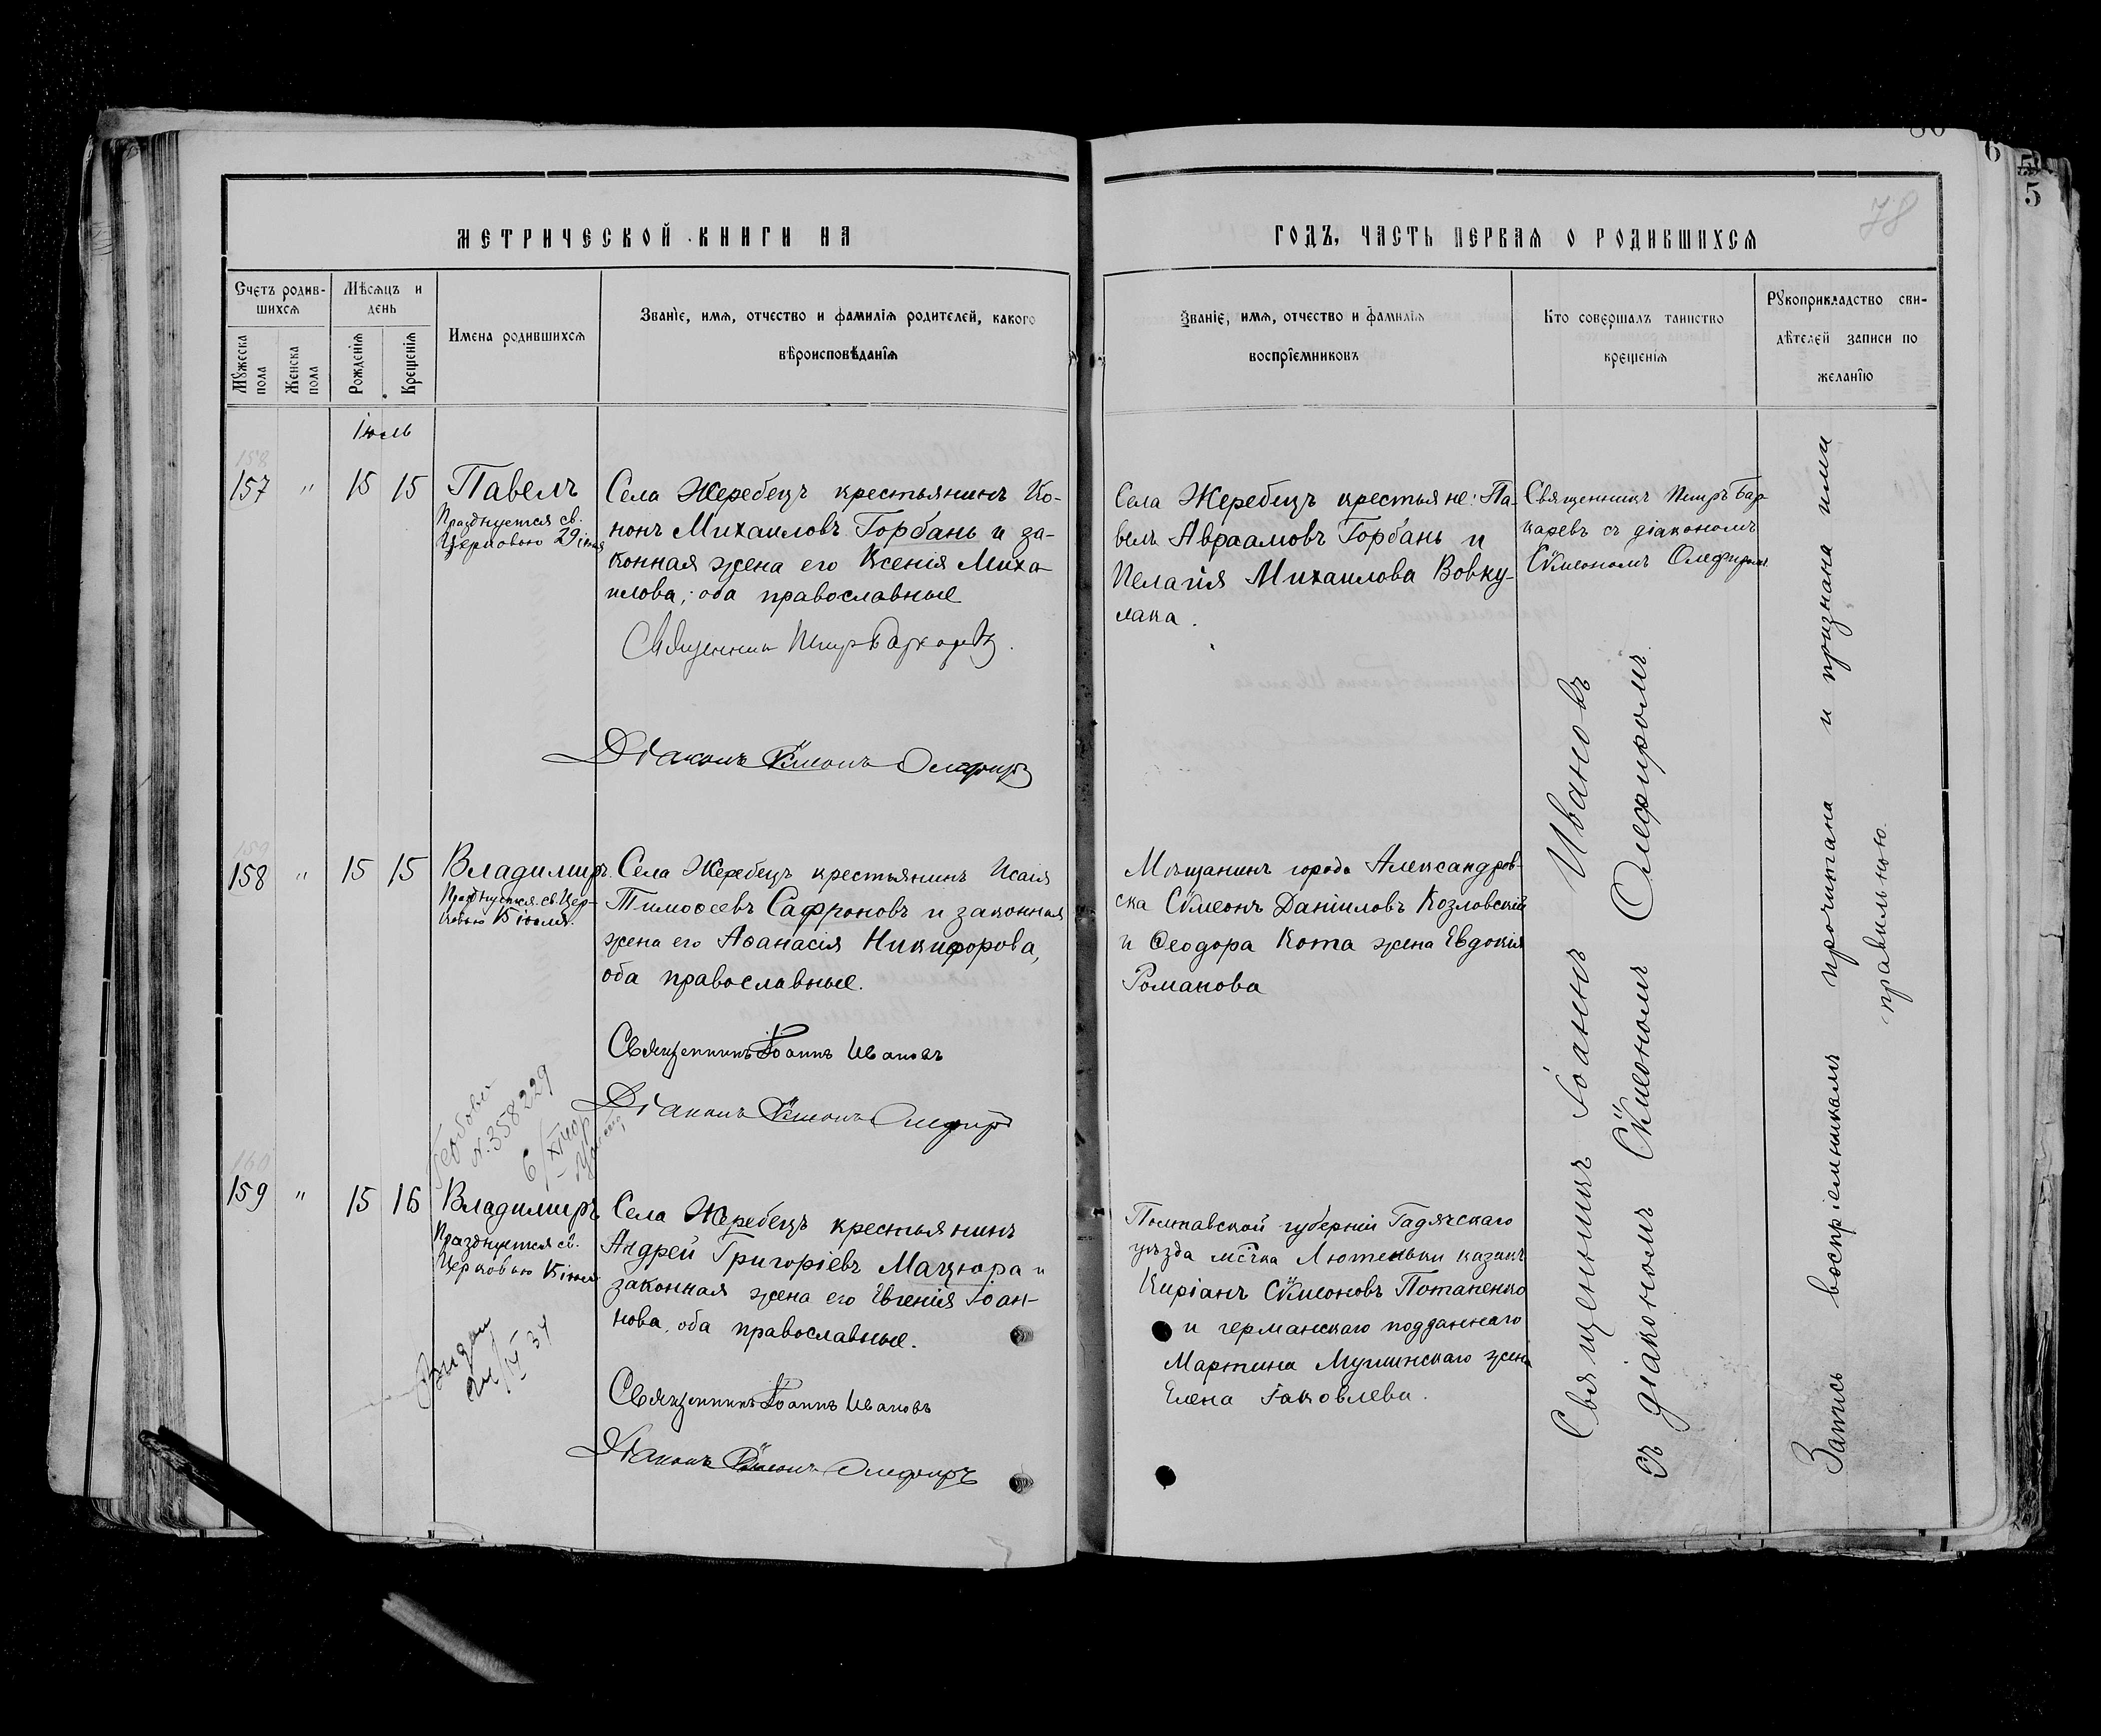 МЕТРИЧЕСКОЙ КНИГИ НА
ГОДЪ, ЧАСТЬ ПЕРВАЯ О РОДИВШИХСЯ
78
6
5
5
Счетъ родив-
шихся
Мужеска
пола
Женска
пола
Мѣсяцъ и
день
Рожденія
Крещенія
Имена родившихся
Званіе, имя, отчество и фамилія родителей, какого
вѣроисповѣданія
Званіе, имя, отчество и фамилія
воспріемниковъ
Кто совершалъ таинство
крещенія
Рукоприкладство сви-
дѣтелей записи по
желанію
Іюль
158
157 " 15 15
Павелъ
Празднуется св.
Церковью 29 іюня
Села Жеребецъ крестьянинъ Ко-
нонъ Михаиловъ Горбань и за-
конная жена его Ксенія Миха-
илова; оба православные
Священникъ Петръ Бар
Діаконъ Сѵмеонъ Олефиръ
Села Жеребецъ крестьяне: Па-
велъ Авраамовъ Горбань и
Пелагія Михаилова Вовку-
лака.
Священникъ Петръ Бар-
каревъ съ діакономъ
Сѵмеономъ Олефиромъ
158 " 15 15
Владимиръ.
Празднуется св. Цер-
ковью 15 іюля.
Села Жеребецъ крестьянинъ Исаія
Тимоѳеевъ Сафроновъ и законная
жена его Аѳанасія Никифорова,
оба православные.
Священникъ Іоаннъ Ивановъ
Діаконъ Сѵмеонъ Олефиръ
Мѣщанинъ города Александров-
ска Сѵмеонъ Даніиловъ Козловскій
и Ѳеодора Кота жена Евдокія
Романова
N. 358229
160
159 " 15 16
Владимиръ
Празднуется св.
Церковью 15 іюля
Села Жеребецъ крестьянинъ
Андрей Григоріевъ Мацюра и
законная жена его Евгенія Іоан-
нова, оба православные.
Священникъ Іоаннъ Ивановъ
Діаконъ Сѵмеонъ Олефиръ
Полтавской губерніи Гадячскаго
уѣзда мѣстчка Лютеньки казакъ
Киріанъ Сѵмеоновъ Потапенко
и германскаго подданнаго
Мартина Муглинскаго жена
Елена Іаковлева.
Видан
34
Священникъ Іоаннъ Ивановъ
съ діакономъ Сѵмеономъ Олефиромъ.
Запись воспріемникамъ прочитана и признана ими
правильною.